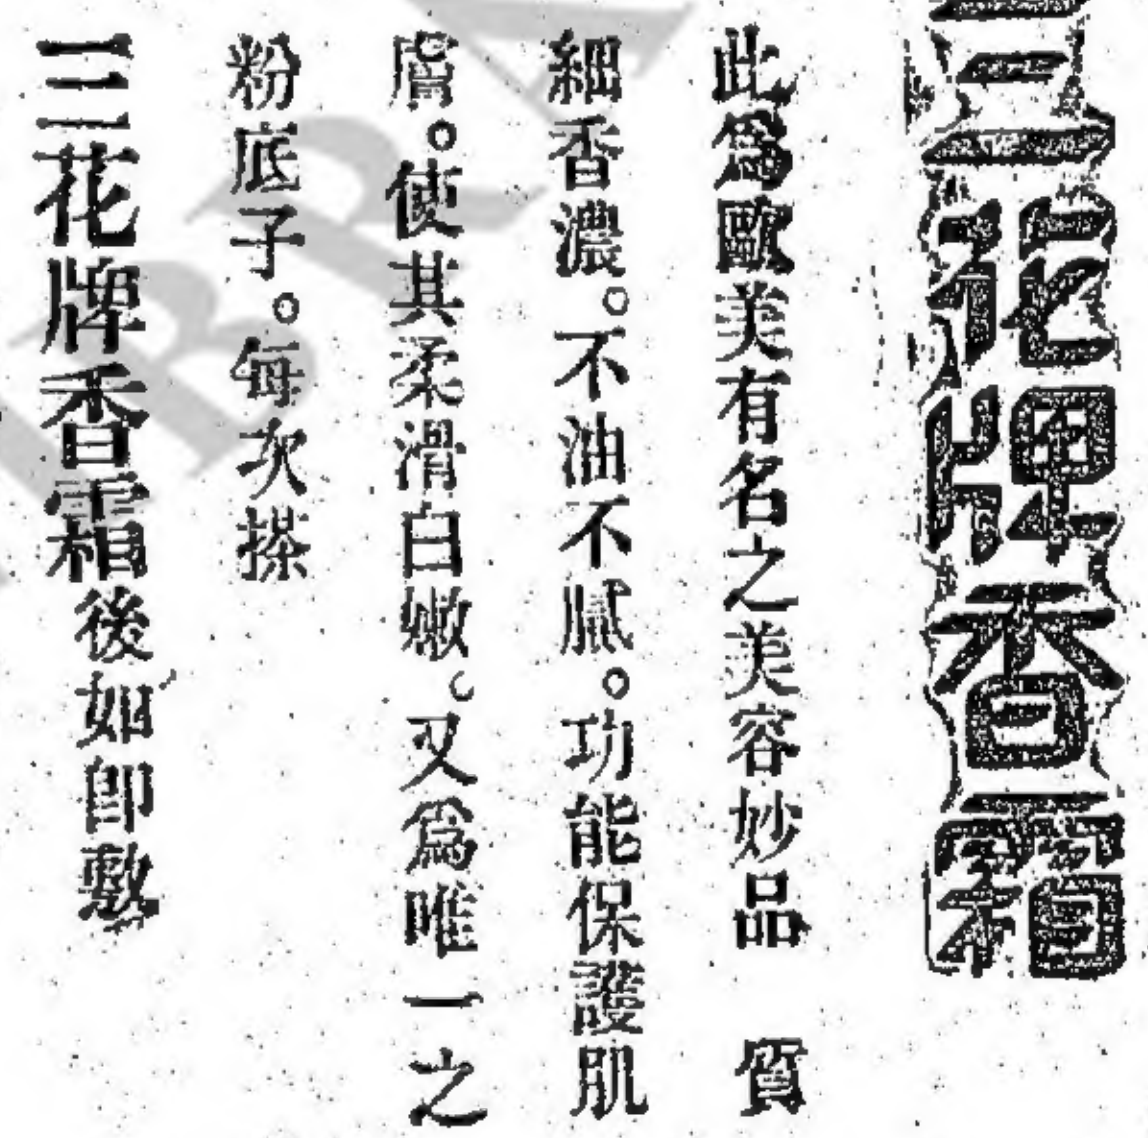 三花牌香霜
此爲歐美有名之美容妙品　質
細香濃。不油不膩。功能保護肌
膚。使其柔滑白嫩。又爲唯一之
粉底子。每次搽
三花牌香霜後如卽敷